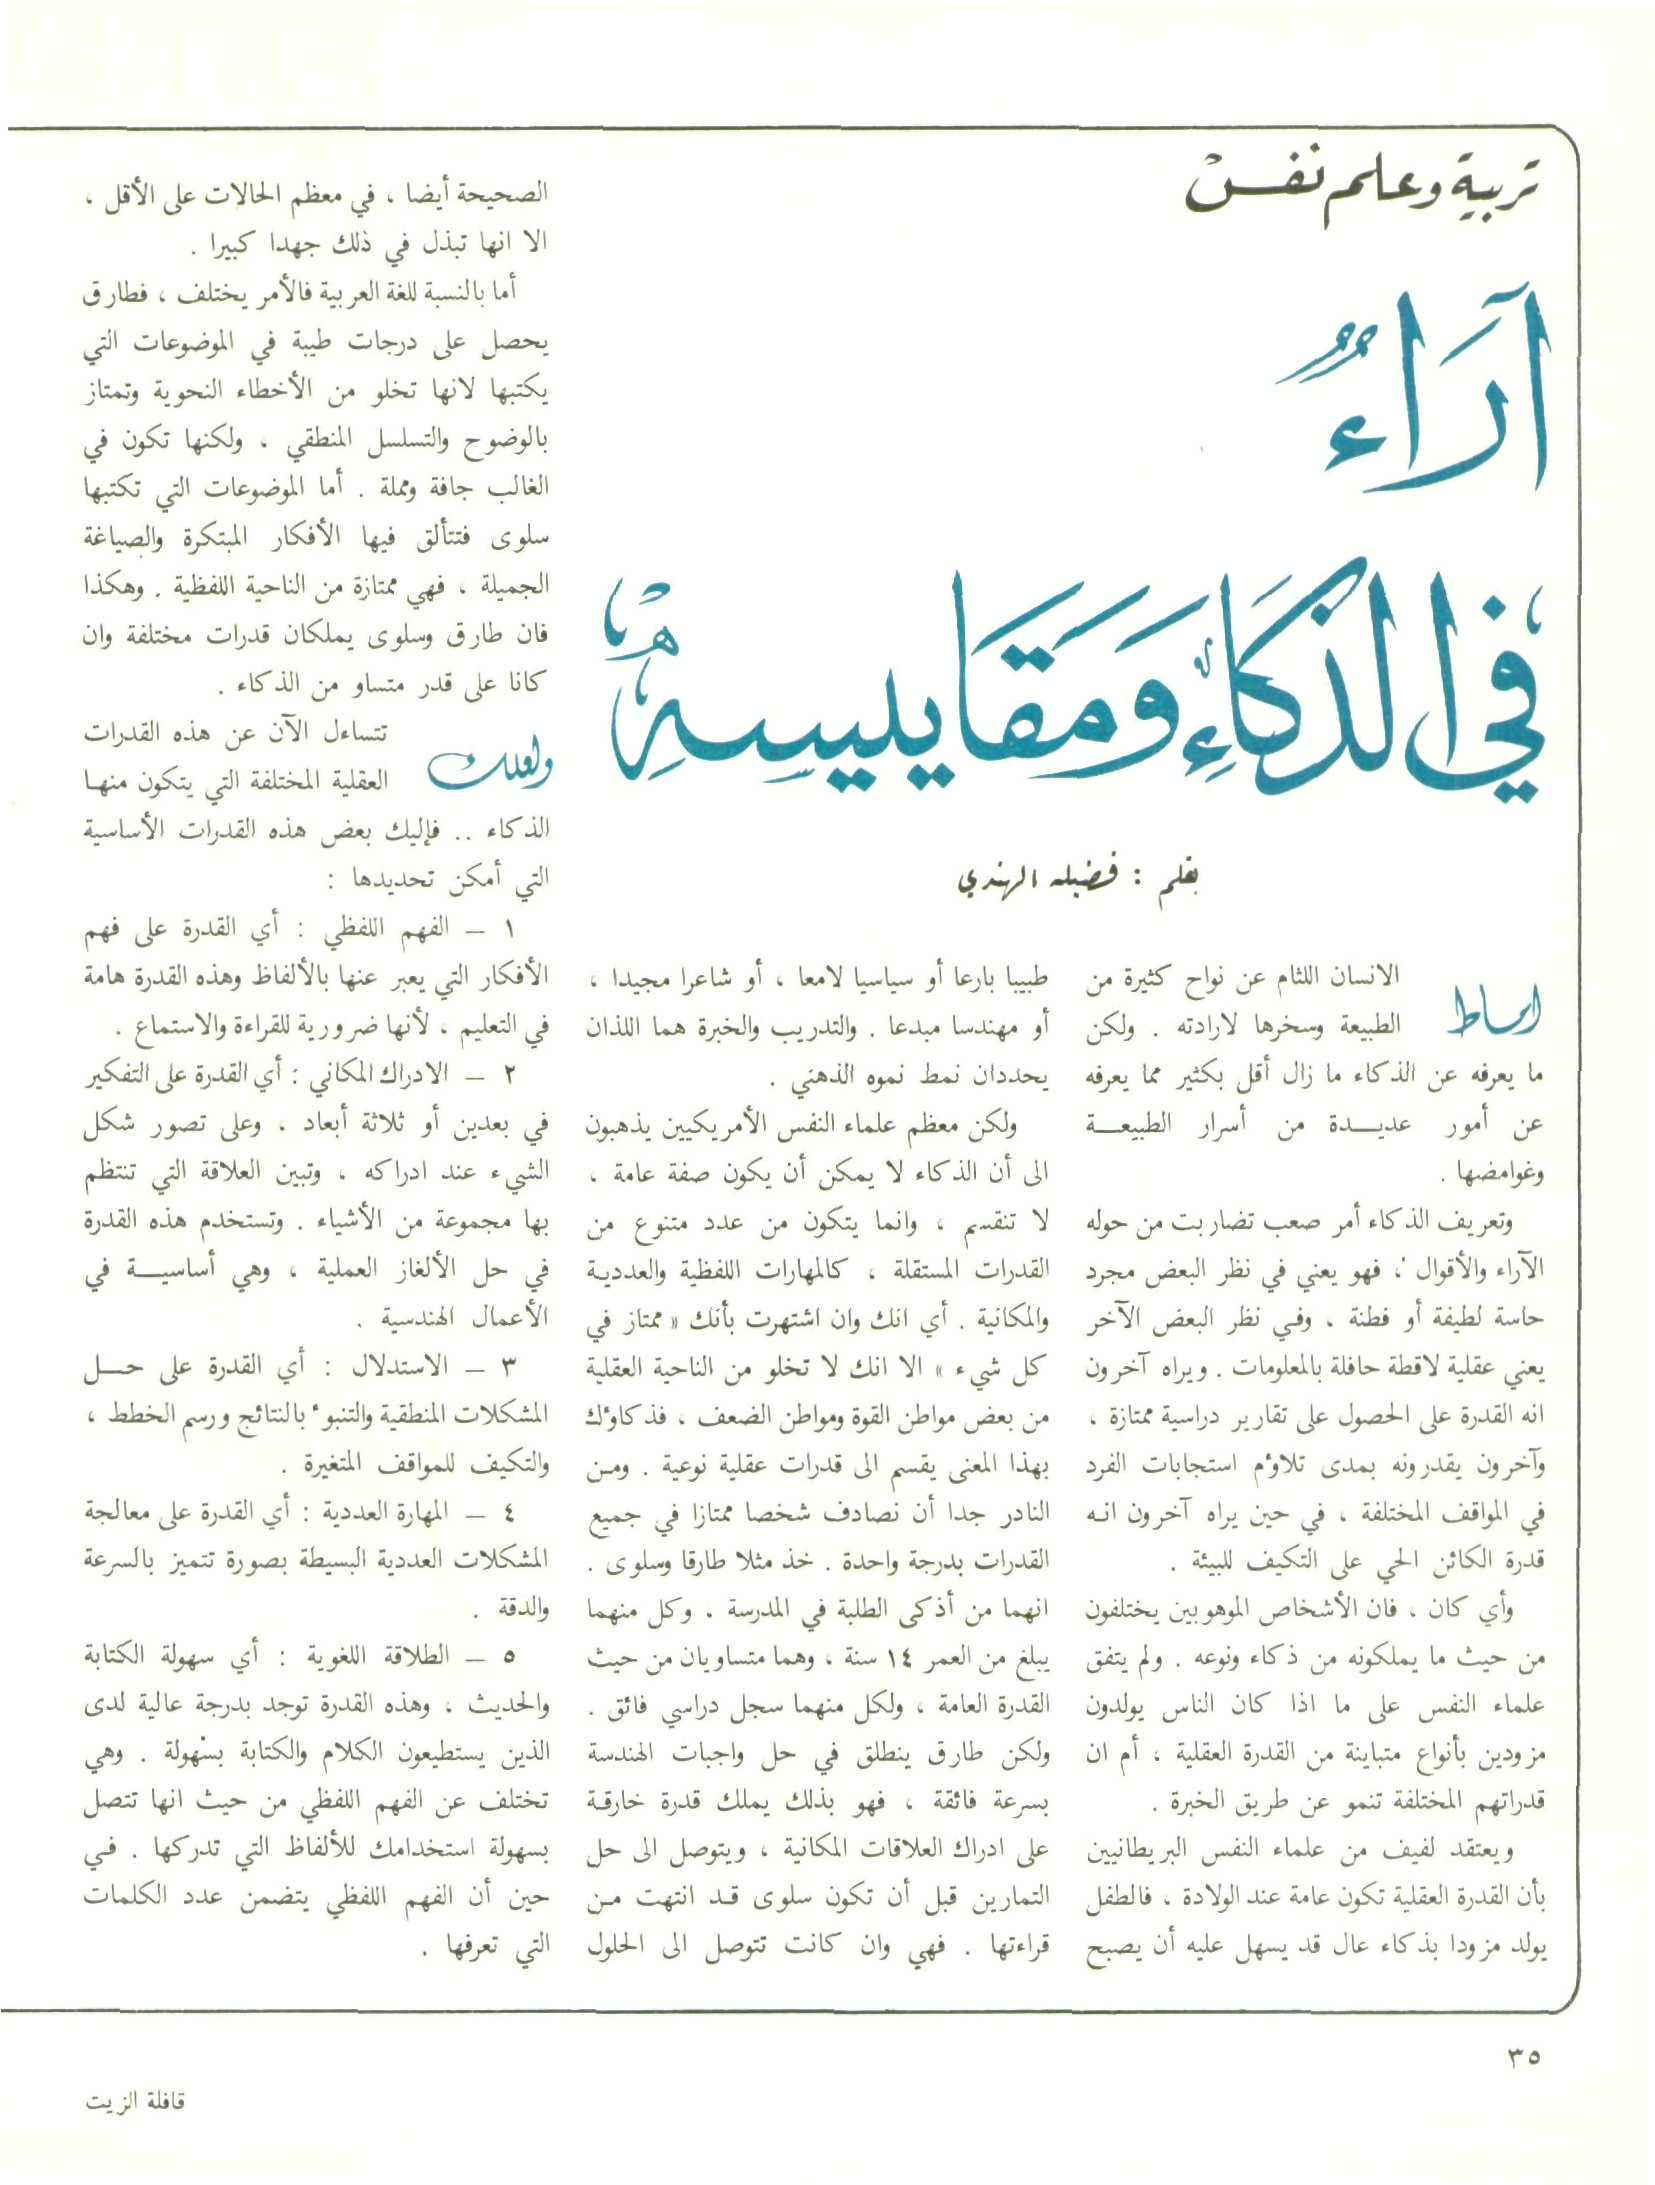 تربية وعلم نفس
آراءٌ
في الذكاءِ ومقاييسهِ
بقلم : فضيله الهندي
اماط الانسان اللثام عن نواح كثيرة من
الطبيعة وسخرها لارادته . ولكن
ما يعرفه عن الذكاء ما زال أقل بكثير مما يعرفه
عن أمور عديدة من أسرار الطبيعة
وغوامضها .
وتعريف الذكاء أمر صعب تضاربت من حوله
الآراء والأقوال ، فهو يعني في نظر البعض مجرد
حاسة لطيفة أو فطنة ، وفي نظر البعض الآخر
يعني عقلية لاقطة حافلة بالمعلومات . ويراه آخرون
انه القدرة على الحصول على تقارير دراسية ممتازة ،
وآخرون يقدرونه بمدى تلاؤم استجابات الفرد
في المواقف المختلفة ، في حين يراه آخرون انه
قدرة الكائن الحي على التكيف للبيئة .
وأي كان ، فان الأشخاص الموهوبين يختلفون
من حيث ما يملكونه من ذكاء ونوعه . ولم يتفق
علماء النفس على ما اذا كان الناس يولدون
مزودين بأنواع متباينة من القدرة العقلية ، أم ان
قدراتهم المختلفة تنمو عن طريق الخبرة .
ويعتقد لفيف من علماء النفس البريطانيين
بأن القدرة العقلية تكون عامة عند الولادة ، فالطفل
يولد مزودا بذكاء عال قد يسهل عليه أن يصبح
طبيبا بارعا أو سياسيا لامعا ، أو شاعرا مجيدا ،
أو مهندسا مبدعا . والتدريب والخبرة هما اللذان
يحددان نمط نموه الذهني .
ولكن معظم علماء النفس الأمريكيين يذهبون
الى أن الذكاء لا يمكن أن يكون صفة عامة ،
لا تنقسم ، وانما يتكون من عدد متنوع من
القدرات المستقلة ، كالمهارات اللفظية والعددية
والمكانية . أي انك وان اشتهرت بأنك « ممتاز في
كل شيء » الا انك لا تخلو من الناحية العقلية
من بعض مواطن القوة ومواطن الضعف ، فذكاؤك
بهذا المعنى يقسم الى قدرات عقلية نوعية . ومن
النادر جدا أن نصادف شخصا ممتازا في جميع
القدرات بدرجة واحدة . خذ مثلا طارقا وسلوى .
انهما من أذكى الطلبة في المدرسة . وكل منهما
يبلغ من العمر ١٤ سنة ، وهما متساويان من حيث
القدرة العامة ، ولكل منهما سجل دراسي فائق .
ولكن طارق ينطلق في حل واجبات الهندسة
بسرعة فائقة ، فهو بذلك يملك قدرة خارقة
على ادراك العلاقات المكانية ، ويتوصل الى حل
التمارين قبل أن تكون سلوى قد انتهت من
قراءتها . فهي وان كانت تتوصل الى الحلول
الصحيحة أيضا ، في معظم الحالات على الأقل ،
الا انها تبذل في ذلك جهدا كبيرا .
أما بالنسبة للغة العربية فالأمر يختلف ، فطارق
يحصل على درجات طيبة في الموضوعات التي
يكتبها لانها تخلو من الأخطاء النحوية وتمتاز
بالوضوح والتسلسل المنطقي ، ولكنها تكون في
الغالب جافة ومملة . أما الموضوعات التي تكتبها
سلوى فتتألق فيها الأفكار المبتكرة والصياغة
الجميلة ، فهي ممتازة من الناحية اللفظية . وهكذا
فان طارق وسلوى يملكان قدرات مختلفة وان
كانا على قدر متساو من الذكاء .
ولعلك تتساءل الآن عن هذه القدرات
العقلية المختلفة التي يتكون منها
الذكاء .. فإليك بعض هذه القدرات الأساسية
التي أمكن تحديدها :
١ – الفهم اللفظي : أي القدرة على فهم
الأفكار التي يعبر عنها بالألفاظ وهذه القدرة هامة
في التعليم ، لأنها ضرورية للقراءة والاستماع .
٢ – الادراك المكاني : أي القدرة على التفكير
في بعدين أو ثلاثة أبعاد ، وعلى تصور شكل
الشيء عند ادراكه ، وتبين العلاقة التي تنتظم
بها مجموعة من الأشياء . وتستخدم هذه القدرة
في حل الألغاز العملية ، وهي أساسية في
الأعمال الهندسية .
٣ – الاستدلال : أي القدرة على حل
المشكلات المنطقية والتنبؤ بالنتائج ورسم الخطط ،
والتكيف للمواقف المتغيرة .
٤ – المهارة العددية : أي القدرة على معالجة
المشكلات العددية البسيطة بصورة تتميز بالسرعة
والدقة .
٥ – الطلاقة اللغوية : أي سهولة الكتابة
والحديث ، وهذه القدرة توجد بدرجة عالية لدى
الذين يستطيعون الكلام والكتابة بسهولة . وهي
تختلف عن الفهم اللفظي من حيث انها تتصل
بسهولة استخدامك للألفاظ التي تدركها . في
حين أن الفهم اللفظي يتضمن عدد الكلمات
التي تعرفها .
٣٥
قافلة الزيت